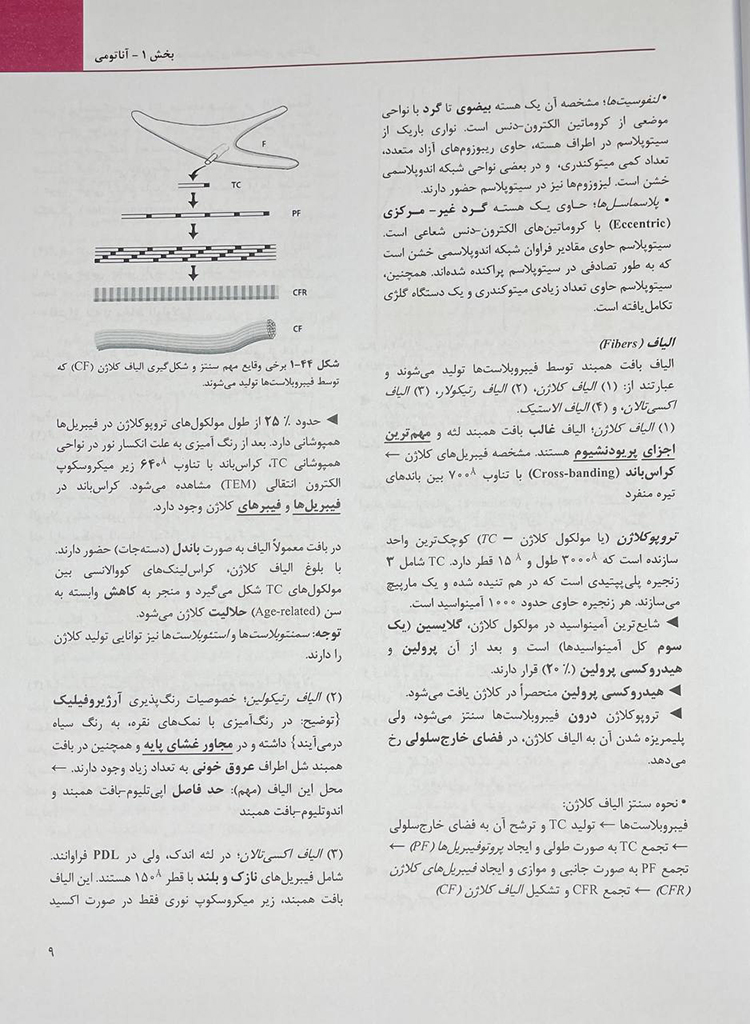 بخش ۱ - آناتومی
• لنفوسیت‌ها؛ مشخصه آن یک هسته بیضوی تا گرد با نواحی
موضعی از کروماتین الکترون-دنس است. نواری باریک از
سیتوپلاسم در اطراف هسته، حاوی ریبوزوم‌های آزاد متعدد،
تعداد کمی میتوکندری، و در بعضی نواحی شبکه اندوپلاسمی
خشن است. لیزوزوم‌ها نیز در سیتوپلاسم حضور دارند.
• پلاسماسل‌ها؛ حاوی یک هسته گرد غیر- مرکزی
(Eccentric) با کروماتین‌های الکترون-دنس شعاعی است.
سیتوپلاسم حاوی مقادیر فراوان شبکه اندوپلاسمی خشن است
که به طور تصادفی در سیتوپلاسم پراکنده شده‌اند. همچنین،
سیتوپلاسم حاوی تعداد زیادی میتوکندری و یک دستگاه گلژی
تکامل‌یافته است.
الیاف (Fibers)
الیاف بافت همبند توسط فیبروبلاست‌ها تولید می‌شوند و
عبارتند از: (۱) الیاف کلاژن، (۲) الیاف رتیکولار، (۳) الیاف
اکسی‌تالان، و (۴) الیاف الاستیک.
(۱) الیاف کلاژن؛ الیاف غالب بافت همبند لثه و مهم‌ترین
اجزای پریودنشیوم هستند. مشخصه فیبریل‌های کلاژن ←
کراس‌باند (Cross-banding) با تناوب ۷۰۰Å بین باندهای
تیره منفرد
تروپوکلاژن (یا مولکول کلاژن – TC) کوچک‌ترین واحد
سازنده است که ۳۰۰۰Å طول و ۱۵Å قطر دارد. TC شامل ۳
زنجیره پلی‌پپتیدی است که در هم تنیده شده و یک مارپیچ
می‌سازند. هر زنجیره حاوی حدود ۱۰۰۰ آمینواسید است.
◄ شایع‌ترین آمینواسید در مولکول کلاژن، گلایسین (یک
سوم کل آمینواسیدها) است و بعد از آن پرولین و
هیدروکسی پرولین (۲۰٪) قرار دارند.
◄ هیدروکسی پرولین منحصراً در کلاژن یافت می‌شود.
◄ تروپوکلاژن درون فیبروبلاست‌ها سنتز می‌شود، ولی
پلیمریزه شدن آن به الیاف کلاژن، در فضای خارج‌سلولی رخ
می‌دهد.
• نحوه سنتز الیاف کلاژن:
فیبروبلاست‌ها ← تولید TC و ترشح آن به فضای خارج‌سلولی
← تجمع TC به صورت طولی و ایجاد پروتوفیبریل‌ها (PF) ←
تجمع PF به صورت جانبی و موازی و ایجاد فیبریل‌های کلاژن
(CFR) ← تجمع CFR و تشکیل الیاف کلاژن (CF)
F
TC
PF
CFR
CF
شکل ۴۴-۱ برخی وقایع مهم سنتز و شکل‌گیری الیاف کلاژن (CF) که
توسط فیبروبلاست‌ها تولید می‌شوند.
◄ حدود ۲۵٪ از طول مولکول‌های تروپوکلاژن در فیبریل‌ها
همپوشانی دارد. بعد از رنگ آمیزی به علت انکسار نور در نواحی
همپوشانی TC، کراس‌باند با تناوب ۶۴۰Å زیر میکروسکوپ
الکترون انتقالی (TEM) مشاهده می‌شود. کراس‌باند در
فیبریل‌ها و فیبرهای کلاژن وجود دارد.
در بافت معمولاً الیاف به صورت باندل (دسته‌جات) حضور دارند.
با بلوغ الیاف کلاژن، کراس‌لینک‌های کووالانسی بین
مولکول‌های TC شکل می‌گیرد و منجر به کاهش وابسته به
سن (Age-related) حلالیت کلاژن می‌شود.
توجه: سمنتوبلاست‌ها و استئوبلاست‌ها نیز توانایی تولید کلاژن
را دارند.
(۲) الیاف رتیکولین؛ خصوصیات رنگ‌پذیری آرژیروفیلیک
{توضیح: در رنگ‌آمیزی با نمک‌های نقره، به رنگ سیاه
درمی‌آیند} داشته و در مجاور غشای پایه و همچنین در بافت
همبند شل اطراف عروق خونی به تعداد زیاد وجود دارند. ←
محل این الیاف (مهم): حد فاصل اپی‌تلیوم-بافت همبند و
اندوتلیوم-بافت همبند
(۳) الیاف اکسی‌تالان؛ در لثه اندک، ولی در PDL فراوانند.
شامل فیبریل‌های نازک و بلند با قطر ۱۵۰Å هستند. این الیاف
بافت همبند، زیر میکروسکوپ نوری فقط در صورت اکسید
۹